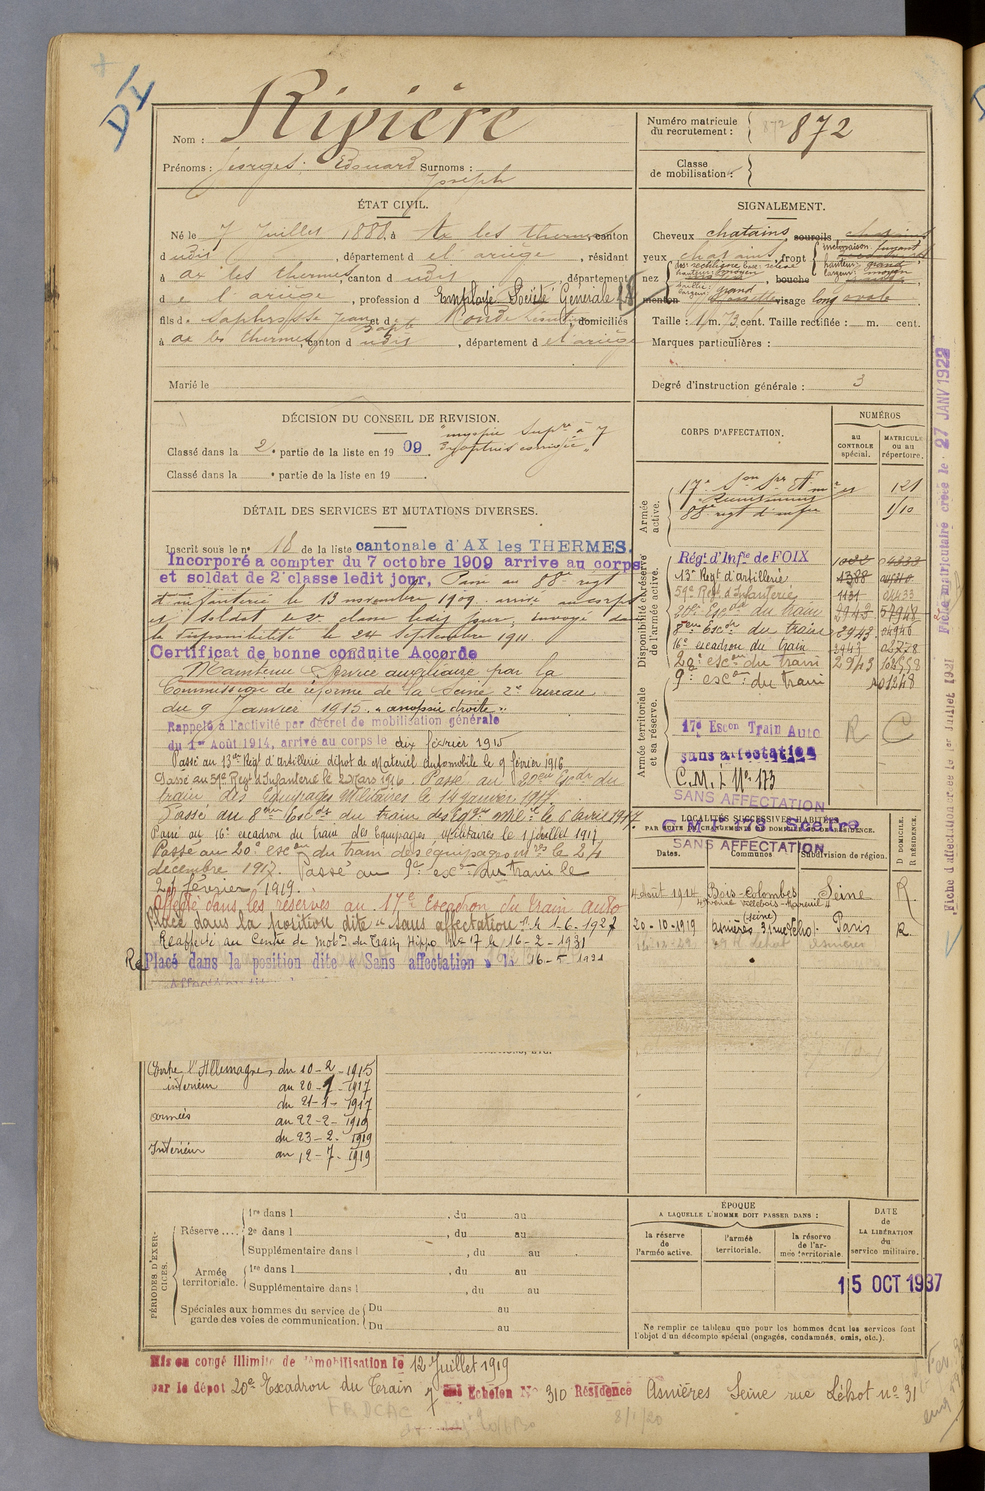 DI
Nom : Rivière
Prénoms : Georges Edouard Surnoms :
Joseph
Numéro matricule
du recrutement : 872 872
Classe
de mobilisation :
ÉTAT CIVIL.
Né le 7 Juillet 1888, à Ax les thermes, canton
d udit, département d el ariège, résidant
à ax les thermes, canton d udit, département
d e l ariège, profession d Employé Société Générale
fils d Jean et d, domiciliés
à ax les thermes, canton d udit, département d el ariège
Marié le
SIGNALEMENT.
Cheveux chatains, sourcils chatains
yeux chatains, front inclinaison: fuyant
hauteur: grand
largeur: moyen
nez dos rectiligne base: relevé
hauteur: moyen, bouche
saillie: grand
menton visage long ovale
Taille : 1 m. 73 cent. Taille rectifiée : m. cent.
Marques particulières :
Degré d'instruction générale : 3
DÉCISION DU CONSEIL DE REVISION.
Classé dans la 2e partie de la liste en 1909 myopie supre à 7
dioptries corrigée
Classé dans la e partie de la liste en 19
DÉTAIL DES SERVICES ET MUTATIONS DIVERSES.
Inscrit sous le no 18 de la liste cantonale d'AX les THERMES.
Incorporé a compter du 7 octobre 1909 arrive au corps
et soldat de 2e classe ledit jour, Passé au 88e regt
d'infanterie le 13 novembre 1909. arrivé au corps
et soldat de 2e classe ledit jour, envoyé dans
la disponibilité le 24 septembre 1911.
Certificat de bonne conduite Accordé
Maintenu Service auxiliaire par la
Commission de réforme de la Seine 2e bureau
du 9 Janvier 1915.
Rappelé à l'activité par décret de mobilisation générale
du 1er Août 1914, arrivé au corps le dix février 1915
Passé au 13me Régt d'artillerie dépôt de Matériel automobile le 9 février 1916
Passé au 51e Régt d'Infanterie le 2 Mars 1916. Passé au 20eme Escdr du
train des Equipages Militaires le 14 janvier 1917.
Passé au 8eme Escdr du train des Eqges Milres le 6 Avril 1917.
Passé au 16e escadron du train des Equipages Militaires le 1 juillet 1917
Passé au 20e escon du train des équipages mres le 24
décembre 1917. Passé au 9e escon du train le
février 1919.
Affecté dans les réserves au 17e Escadron du train auto
Placé dans la position dite "sans affectation" le 1-6-1927
Réaffecté au Centre de Mobon du Train Hippo No 17 le 16-2-1931
Re Placé dans la position dite « Sans affectation » le 16-5 1931
CORPS D'AFFECTATION.
NUMÉROS
au
CONTROLE
spécial.
MATRICULE
ou au
répertoire.
Armée
active.
121
88e regt d'infie 1/10
Disponibilité et réserve
de l'armée active.
Régt d'Infie de FOIX
13e Regt d'artillerie 1388
51e Regt d'Infanterie 1131 04433
20e Escdr du train 2943 57948
8eme Escdr du train 2943 04946
16e escadron du train 2943 02778
20e escon du train 2943
9e escon du train
Armée territoriale
et sa réserve.
17e Escon Train Auto R C
sans affectation
C.M.I No 173
SANS AFFECTATION
LOCALITÉS SUCCESSIVES HABITÉES
PAR SUITE DE CHANGEMENTS DE DOMICILE OU DE RÉSIDENCE.
C M I 173
SANS AFFECTATION
Dates. Communes Subdivision de région. D DOMICILE. R RÉSIDENCE.
4 août 1914 Bois-Colombes Seine R.
(Seine)
20-10-1919 Asnières 31 rue Paris R.
Contre l'Allemagne du 10-2-1915
intérieur au 20-1-1917
du 21-1-1917
armées au 22-2-1919
du 23-2-1919
Intérieur au 12-7-1919
PÉRIODES D'EXERCICES.
Réserve .... 1re dans l , du au
2e dans l , du au
Supplémentaire dans l , du au
Armée
territoriale. 1re dans l , du au
Supplémentaire dans l , du au
Spéciales aux hommes du service de
garde des voies de communication. Du au
Du au
ÉPOQUE
A LAQUELLE L'HOMME DOIT PASSER DANS :
la réserve
de
l'armée active.
l'armée
territoriale.
la réserve
de l'ar-
mée territoriale.
DATE
de
LA LIBÉRATION
du
service militaire.
15 OCT 1937
Ne remplir ce tableau que pour les hommes dont les services font
l'objet d'un décompte spécial (engagés, condamnés, omis, etc.).
Mis en congé illimité de démobilisation le 12 Juillet 1919
par le dépôt 20e Escadron du Train 7 Echelon No 310 Résidence Asnières Seine rue no 31
8/1/20
Fiche matriculaire créée le 27 JANV 1922
Fiche d'affectation créée le 1er Juillet 1921